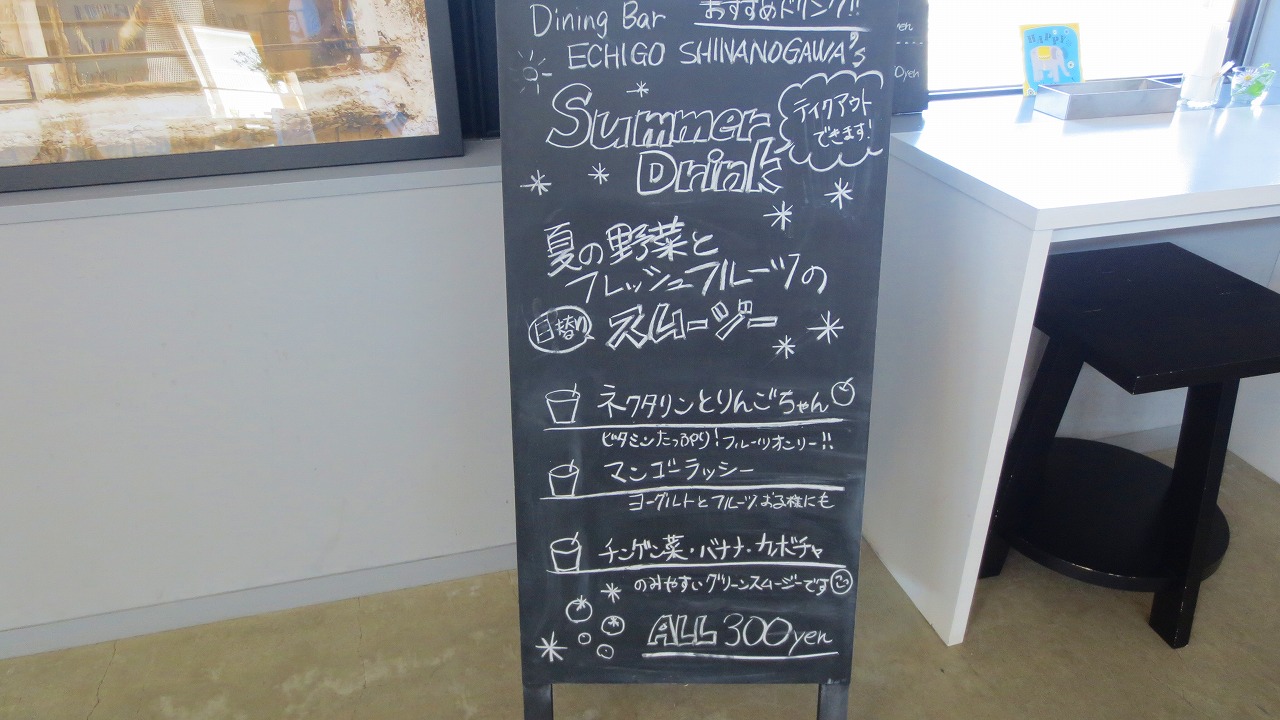 Dining Bar おすすめドリンク!!
ECHIGO SHINANOGAWA's
Summer
Drink
テイクアウト
できます!
夏の野菜と
フレッシュフルーツの
日替り スムージー
ネクタリンとりんごちゃん
ビタミンたっぷり!フルーツオンリー!!
マンゴーラッシー
ヨーグルトとフルーツ お子様にも
チンゲン菜・バナナ・カボチャ
のみやすいグリーンスムージーです
ALL 300yen
HAPPY
0yen